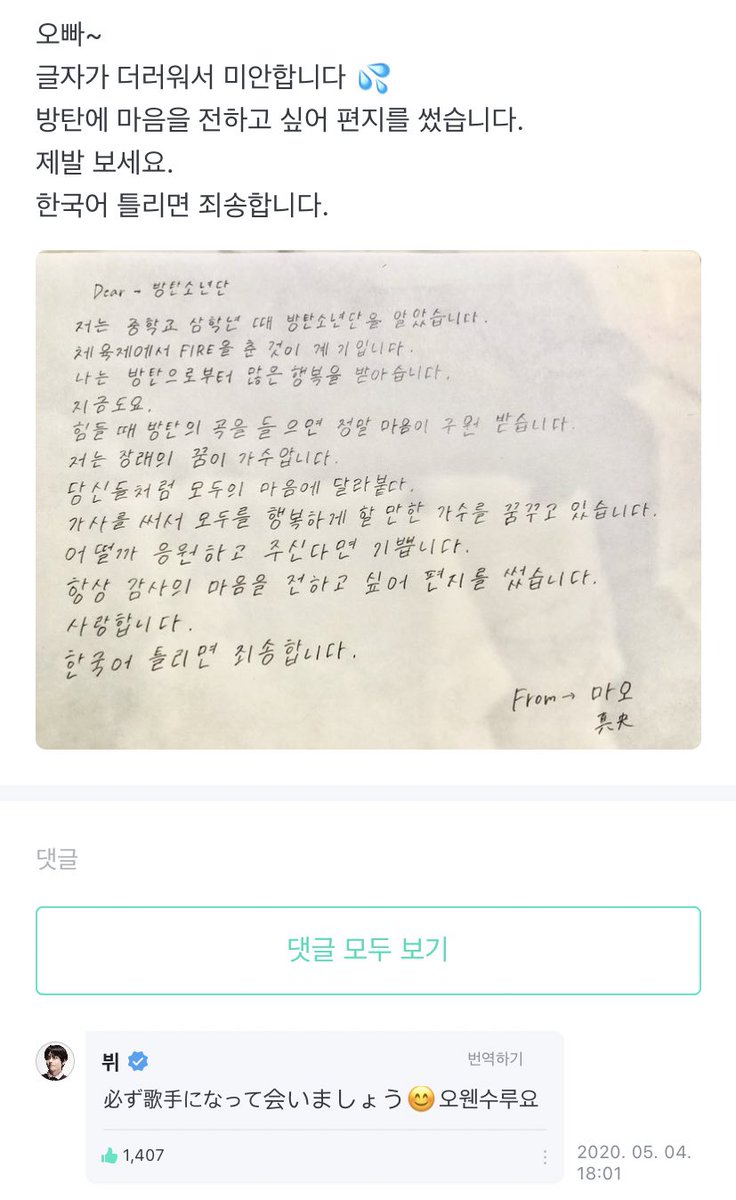 오빠~
글자가 더러워서 미안합니다 💦
방탄에 마음을 전하고 싶어 편지를 썼습니다.
제발 보세요.
한국어 틀리면 죄송합니다.
Dear → 방탄소년단
저는 중학교 삼학년 때 방탄소년단을 알았습니다.
체육제에서 FIRE을 춘 것이 계기입니다.
나는 방탄으로부터 많은 행복을 받아습니다.
지금도요.
힘들 때 방탄의 곡을 들으면 정말 마음이 구원 받습니다.
저는 장래의 꿈이 가수압니다.
당신들처럼 모두의 마음에 달라붙다.
가사를 써서 모두를 행복하게 할 만한 가수를 꿈꾸고 있습니다.
어떨까 응원하고 주신다면 기쁩니다.
항상 감사의 마음을 전하고 싶어 편지를 썼습니다.
사랑합니다.
한국어 틀리면 죄송합니다.
From → 마오
真央
댓글
댓글 모두 보기
뷔 번역하기
必ず歌手になって会いましょう😊오웬수루요
1,407
2020. 05. 04.
18:01